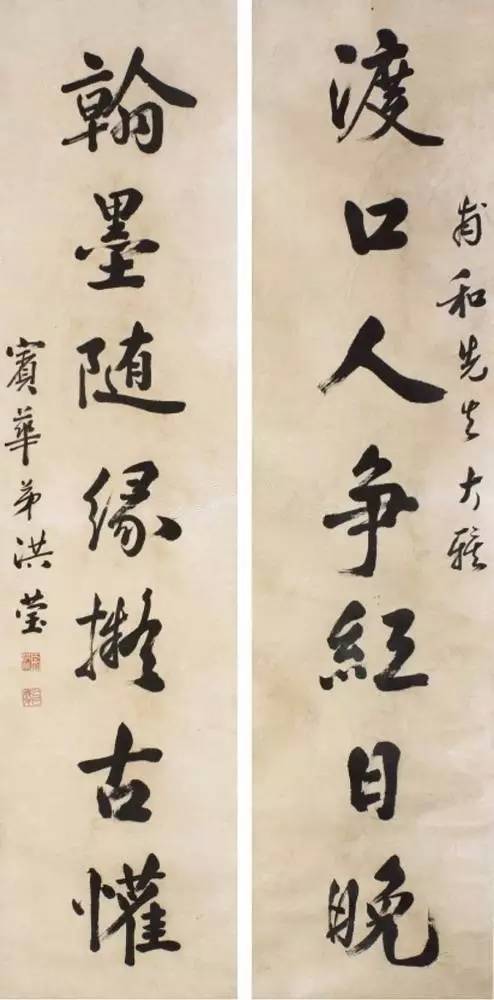 甫和先生大雅
渡口人争紅日晚
翰墨随緣擬古懽
賓華弟洪瑩